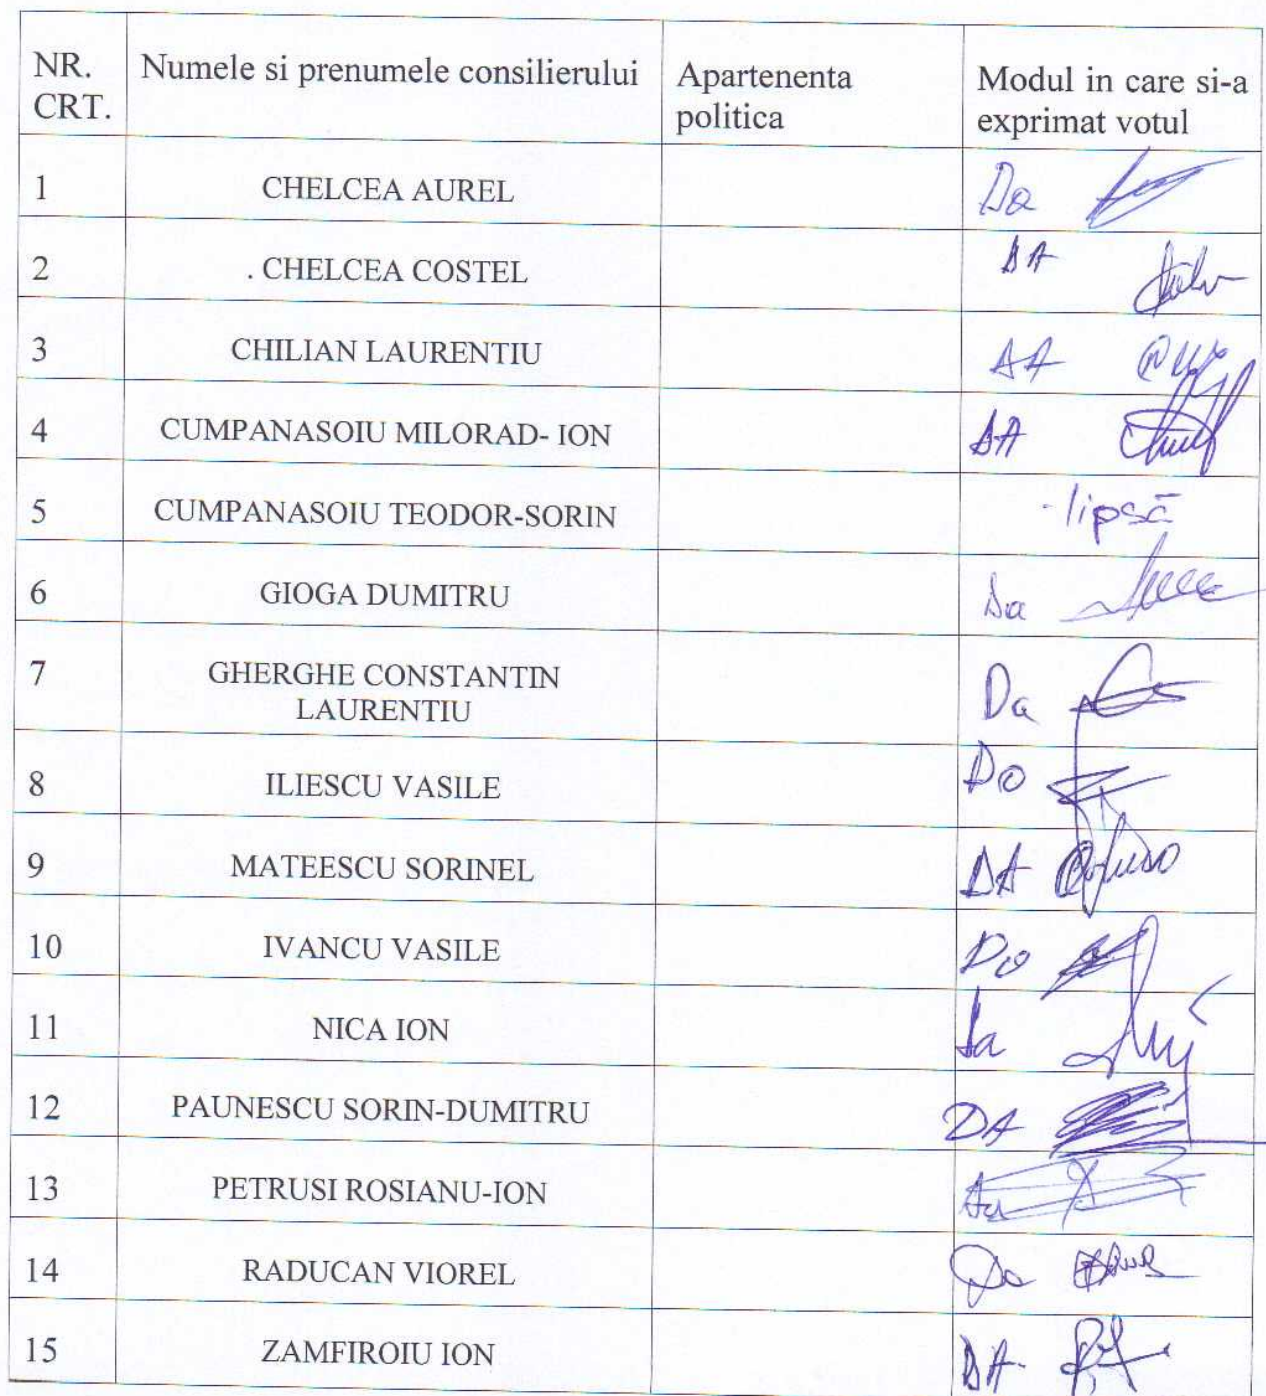 NR. CRT. Numele si prenumele consilierului Apartenenta politica Modul in care si-a exprimat votul
1 CHELCEA AUREL Da
2 . CHELCEA COSTEL DA
3 CHILIAN LAURENTIU DA
4 CUMPANASOIU MILORAD- ION DA
5 CUMPANASOIU TEODOR-SORIN -lipsă
6 GIOGA DUMITRU Da
7 GHERGHE CONSTANTIN LAURENTIU Da
8 ILIESCU VASILE Da
9 MATEESCU SORINEL DA
10 IVANCU VASILE Da
11 NICA ION Da
12 PAUNESCU SORIN-DUMITRU DA
13 PETRUSI ROSIANU-ION Da
14 RADUCAN VIOREL Da
15 ZAMFIROIU ION DA